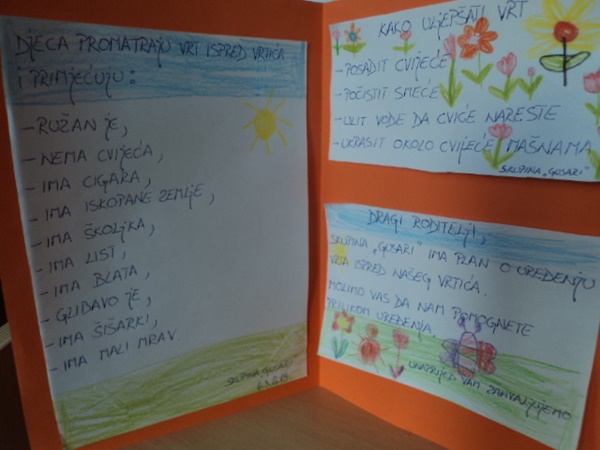 DJECA PROMATRAJU VRT ISPRED VRTIĆA
I PRIMJEĆUJU:
- RUŽAN JE,
- NEMA CVIJEĆA,
- IMA CIGARA,
- IMA ISKOPANE ZEMLJE,
- IMA ŠKOLJKA,
- IMA LIST,
- IMA BLATA,
- GLIBAVO JE,
- IMA ŠIŠARKI,
- IMA MALI MRAV
SKUPINA "GUSARI"
KAKO ULJEPŠATI VRT
- POSADIT CVIJEĆE
- POČISTIT SMEĆE
- ULIT VODE DA CVIĆE NARESTE
- UKRASIT OKOLO CVIJEĆE MAŠNAMA
SKUPINA "GUSARI"
DRAGI RODITELJI,
SKUPINA "GUSARI" IMA PLAN O UREĐENJU
VRTA ISPRED NAŠEG VRTIĆA.
MOLIMO VAS DA NAM POMOGNETE
PRILIKOM UREĐENJA
UNAPRIJED VAM ZAHVALJUJEMO